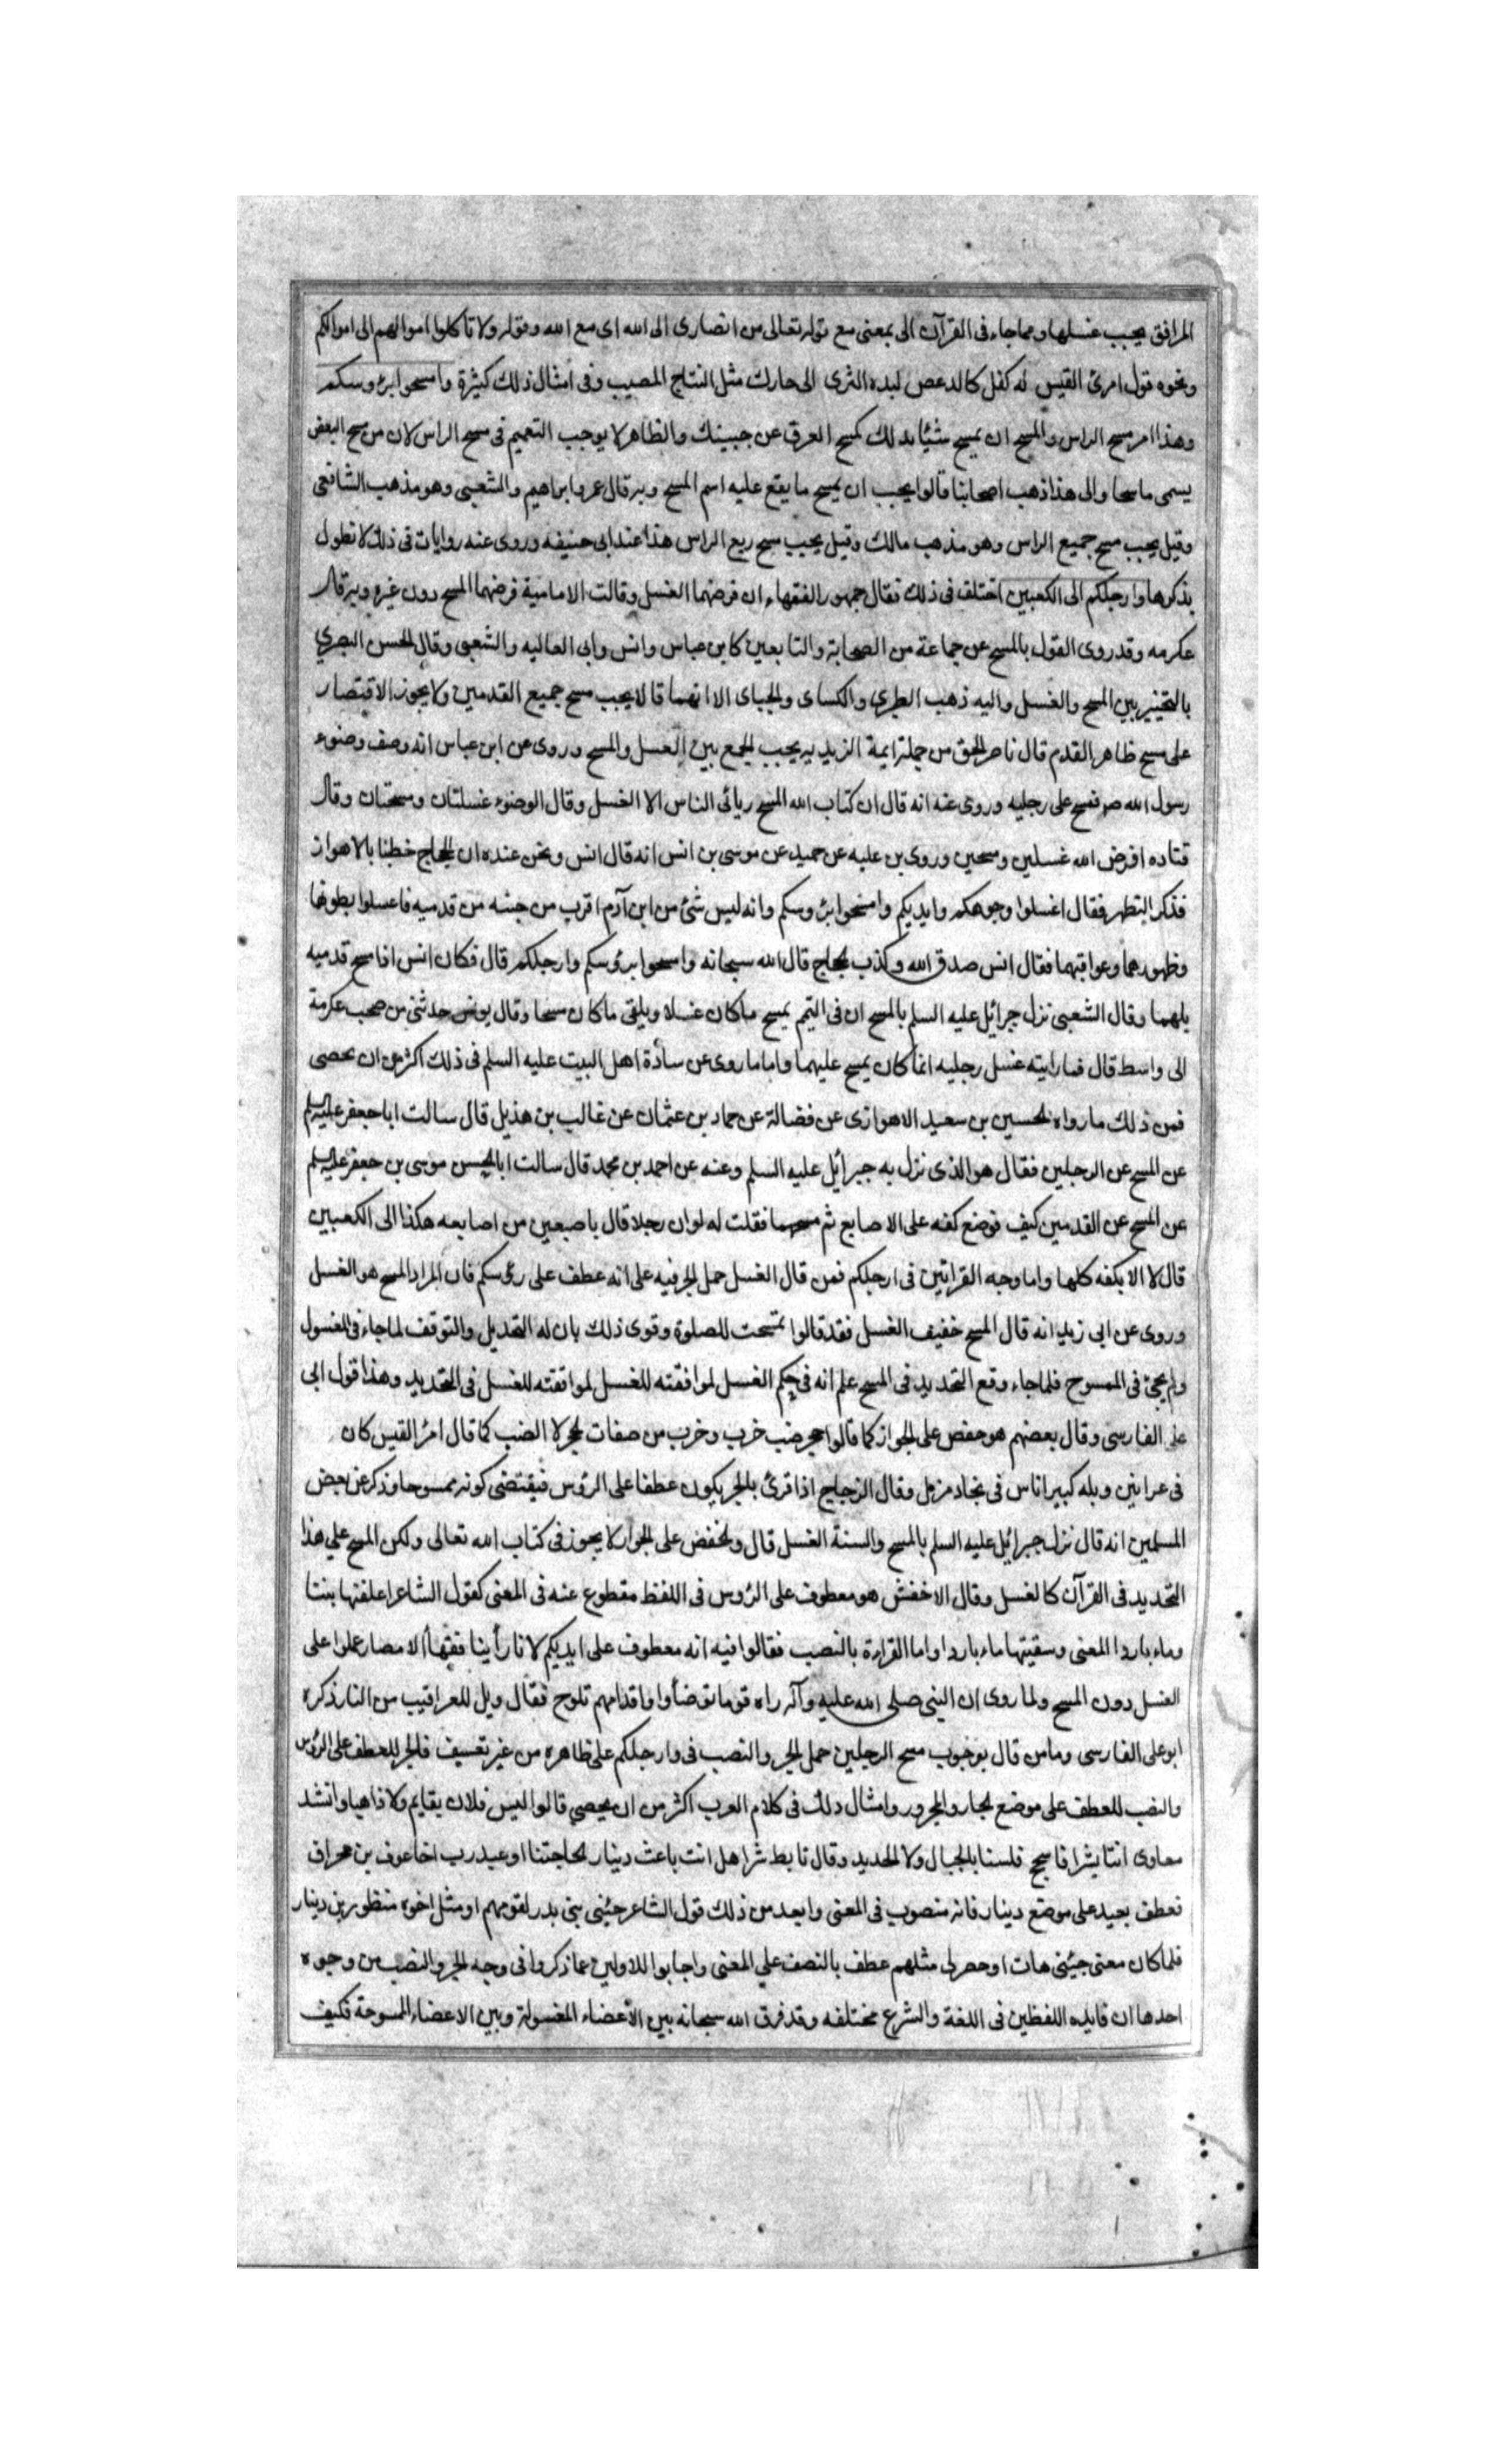 المرافق يجب غسلها ومما جاء فى القرآن الى بمعنى مع قوله تعالى من انصارى الى الله اى مع الله وقوله ولا تأكلوا اموالهم الى اموالكم
ونحوه قول امرئ القيس له كفل كالدعص لبده الثرى الى حارك مثل النتاج المصبب وفى امثال ذلك كثيرة وامسحوا برءوسكم
وهذا امر مسح الراس والمسح ان يمسح شيئا بدلك كمسح العرق عن جبينك والظاهر لا يوجب التعميم فى مسح الراس لان من مسح البعض
يسمى ماسحا والى هذا ذهب اصحابنا قالوا يجب ان يمسح ما يقع عليه اسم المسح وبه قال عمر وابراهيم والشعبى وهو مذهب الشافعى
وقيل يجب مسح جميع الراس وهو مذهب مالك وقيل يجب مسح ربع الراس هذا عند ابى حنيفه وروى عنه روايات فى ذلك لا نطول
بذكرها وارجلكم الى الكعبين اختلف فى ذلك فقال جمهور الفقهاء ان فرضهما الغسل وقالت الامامية فرضهما المسح دون غيره وبه قال
عكرمه وقد روى القول بالمسح عن جماعة من الصحابة والتابعين كابن عباس وانس وابى العاليه والشعبى وقال الحسن البصرى
بالتخيير بين المسح والغسل واليه ذهب الطبرى والكساى والجباى الا انهما قالا يجب مسح جميع القدمين ولا يجوز الاقتصار
على مسح ظاهر القدم قال ناصر الحق من جملة ايمة الزيديه يجب الجمع بين الغسل والمسح وروى عن ابن عباس انه وصف وضوء
رسول الله ص فمسح على رجليه وروى عنه انه قال ان كتاب الله المسح ويائى الناس الا الغسل وقال الوضوء غسلتان ومسحتان وقال
قتاده افرض الله غسلين ومسحين وروى بن عليه عن حميد عن موسى بن انس انه قال انس ونحن عنده ان الحجاج خطبنا بالاهواز
فذكر التطهر فقال اغسلوا وجوهكم وايديكم وامسحوا برءوسكم وانه ليس شئ من ابن آدم اقرب من خبثه من قدميه فاغسلوا بطونها
وظهورهما وعواقبهما فقال انس صدق الله وكذب الحجاج قال الله سبحانه وامسحوا برؤسكم وارجلكم قال فكان انس اذا مسح قدميه
بلهما وقال الشعبى نزل جبرائيل عليه السلم بالمسح ان فى التيمم يمسح ماكان غسلا ويلقى ماكان مسحا وقال يونس حدثنى من صحب عكرمة
الى واسط قال فما رايته غسل رجليه انما كان يمسح عليهما واما ما روى عن سادة اهل البيت عليه السلم فى ذلك اكثر من ان يحصى
فمن ذلك ما رواه الحسين بن سعيد الاهوازى عن فضالة عن حماد بن عثمان عن غالب بن هذيل قال سالت ابا جعفر عليه السلم
عن المسح عن الرجلين فقال هو الذى نزل به جبرائيل عليه السلم وعنه عن احمد بن محمد قال سالت ابا الحسن موسى بن جعفر عليه السلم
عن المسح عن القدمين كيف فوضع كفه على الاصابع ثم مسحهما فقلت له لو ان رجلا قال باصبعين من اصابعه هكذا الى الكعبين
قال لا الا بكفه كلها واما وجه القراتين فى ارجلكم فمن قال الغسل حمل الجر فيه على انه عطف على رءوسكم فان المراد المسح هو الغسل
وروى عن ابى زيد انه قال المسح خفيف الغسل فقد قالوا تمسحت للصلوة وقوى ذلك بان له التحديل والتوقف لما جاء فى الغسول
ولم يجئ فى الممسوح فلما جاء وقع التحديد فى المسح علم انه فى حكم الغسل لموافقته للغسل لموافقته للغسل فى التحديد وهذا قول ابى
على الفارسى وقال بعضهم هو خفض على الجواز كما قالوا حجر ضب خرب وخرب من صفات الحجر لا الضب كما قال امرؤ القيس كان
فى عرانين وبله كبير اناس فى بجاد مزمل وقال الزجاج اذا قرئ بالجر يكون عطفا على الرؤس فيقتضى كونه ممسوحا وذكر عن بعض
المسلمين انه قال نزل جبرائيل عليه السلم بالمسح والسنة الغسل قال والخفض على الجوار لا يجوز فى كتاب الله تعالى ولكن المسح على هذا
التحديد فى القرآن كالغسل وقال الاخفش هو معطوف على الرؤس فى اللفظ مقطوع عنه فى المعنى كقول الشاعر اعلفتها بنتا
وماء باردا المعنى وسقيتها ماء باردا واما القراءة بالنصب فقالوا فيه انه معطوف على ايديكم لانا رأينا فقهاء الامصار عملوا على
الغسل دون المسح ولما روى ان النبى صلى الله عليه وآله راه قوما توضأوا واقدامهم تلوح فقال ويل للعراقيب من النار ذكره
ابو على الفارسى وماس قال بوجوب مسح الرجلين حمل الجر والنصب فى وارجلكم على ظاهره من غير تعسيف فالجر للعطف على الرؤس
والنصب للعطف على موضع الجار والمجرور وامثال ذلك فى كلام العرب اكثر من ان يحصى قالوا ليس فلان بقايم ولا ذاهبا وانشد
معاوى اننا بشر فاسجح فلسنا بالجبال ولا الحديد وقال تابط شرا هل انت باعث دينار لحاجتنا او عبد رب اخا عوف بن محراق
فعطف بعبد على موضع دينار فانه منصوب فى المعنى وابعد من ذلك قول الشاعر جئينى بنى بدر لقومهم او مثل اخوة منظور بن دينار
فلما كان معنى جيئنى هات او حصر لى مثلهم عطف بالنصف على المعنى واجابوا للاولين عما ذكروا فى وجه الجر والنصب من وجوه
احدها ان فايده اللفظين فى اللغة والشرع مختلفه وقد فرق الله سبحانه بين الاعضاء المغسولة وبين الاعضاء الممسوحة فكيف